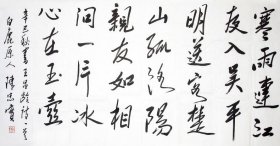 寒雨連江
夜入吴平
明送客楚
山孤洛陽
親友如相
問一片冰
心在玉壺
辛巳秋書王昌齡詩一首
白鹿原人陳忠實